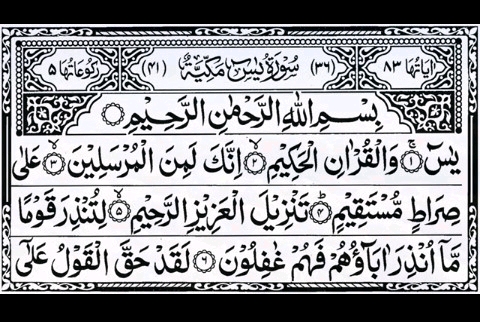 اٰیاتُها ٨٣ (٣٦) سُوْرَةُ يٰسٓ مَكِّيَّةٌ (٤١) رُكُوْعَاتُها ٥
بِسْمِ اللهِ الرَّحْمٰنِ الرَّحِيْمِ
يٰسٓ ۝١ وَالْقُرْاٰنِ الْحَكِيْمِ ۝٢ اِنَّكَ لَمِنَ الْمُرْسَلِيْنَ ۝٣ عَلٰى
صِرَاطٍ مُّسْتَقِيْمٍ ۝٤ تَنْزِيْلَ الْعَزِيْزِ الرَّحِيْمِ ۝٥ لِتُنْذِرَ قَوْمًا
مَّاۤ اُنْذِرَ اٰبَآؤُهُمْ فَهُمْ غٰفِلُوْنَ ۝٦ لَقَدْ حَقَّ الْقَوْلُ عَلٰۤى